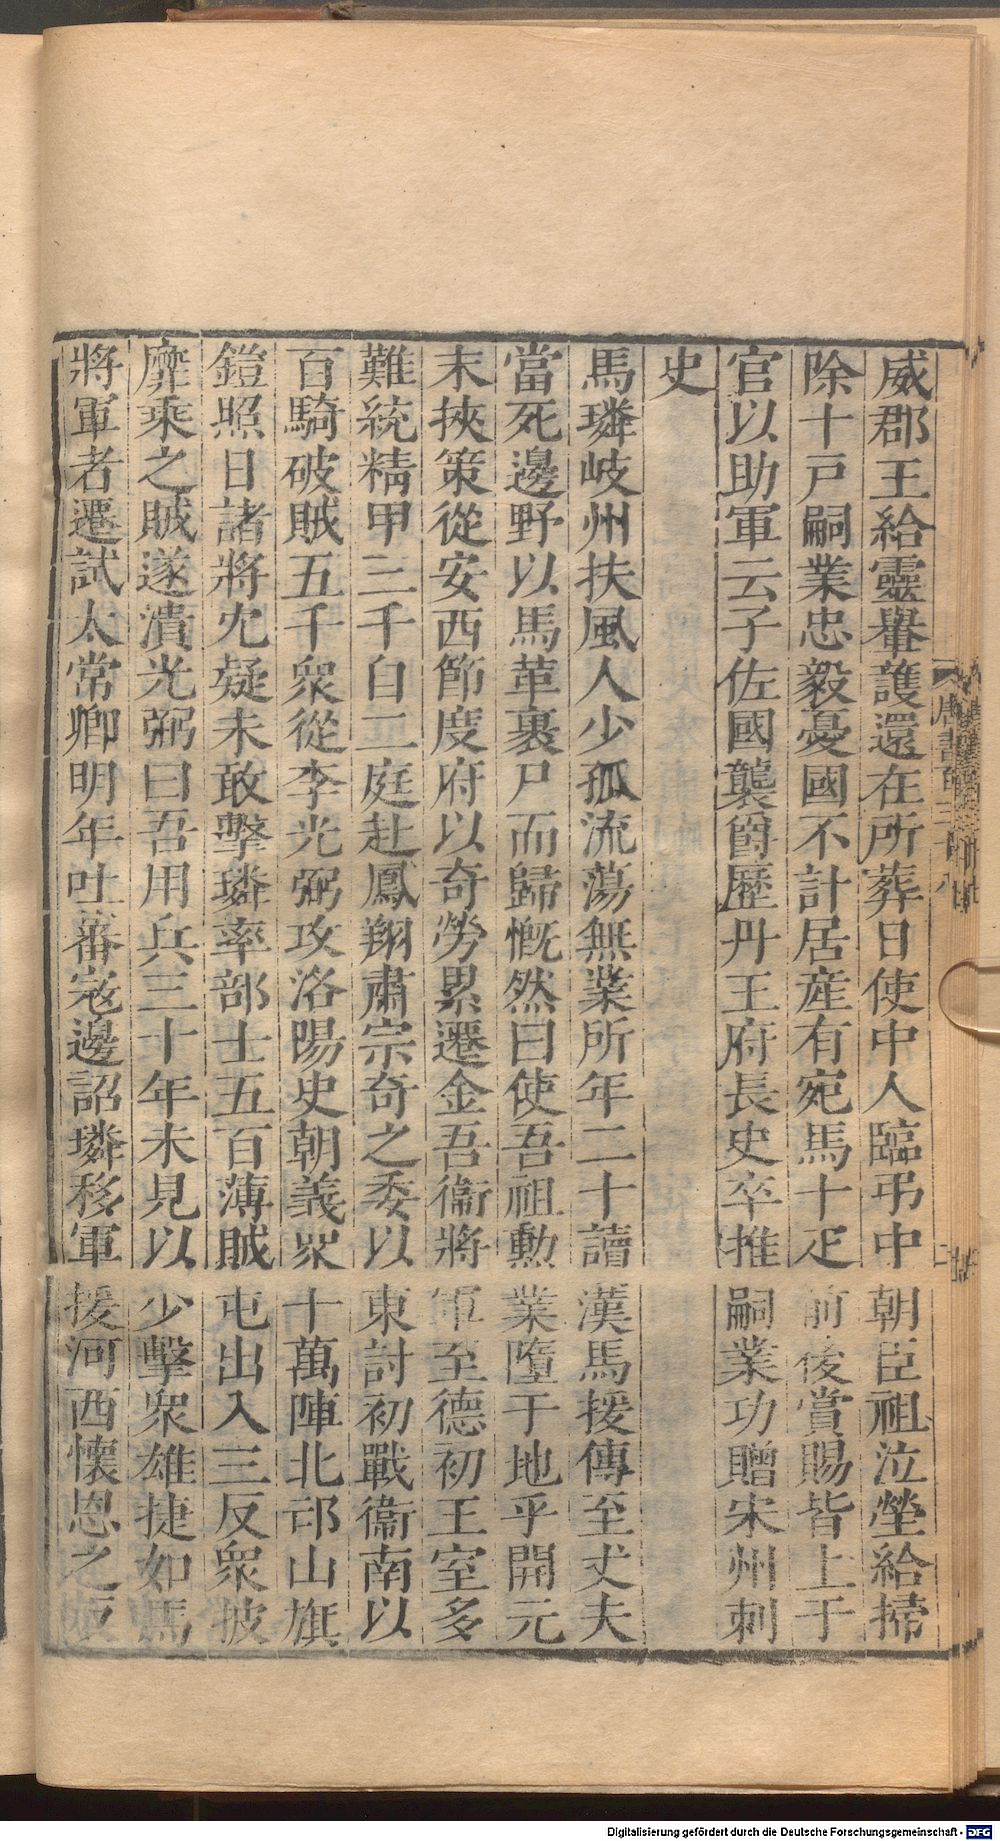 威郡王給靈轝護還在所葬日使中人臨弔中朝臣祖泣塋給掃
除十戸嗣業忠毅憂國不計居産有宛馬十疋前後賞賜皆上于
官以助軍云子佐國襲爵歷丹王府長史卒推嗣業功贈宋州刺
史
馬璘岐州扶風人少孤流蕩無業所年二十讀漢馬援傳至丈夫
當死邊野以馬革裹尸而歸慨然曰使吾祖勳業墮于地乎開元
末挾策從安西節度府以奇勞累遷金吾衞將軍至德初王室多
難統精甲三千自二庭赴鳳翔肅宗奇之委以東討初戰衞南以
百騎破賊五千衆從李光弼攻洛陽史朝義衆十萬陣北邙山旗
鎧照日諸將冘疑未敢擊璘率部士五百薄賊屯出入三反衆披
靡乘之賊遂潰光弼曰吾用兵三十年未見以少擊衆雄捷如馬
將軍者遷試太常卿明年吐蕃寇邊詔璘移軍援河西懷恩之反
唐書百三十八
Digitalisierung gefördert durch die Deutsche Forschungsgemeinschaft - DFG